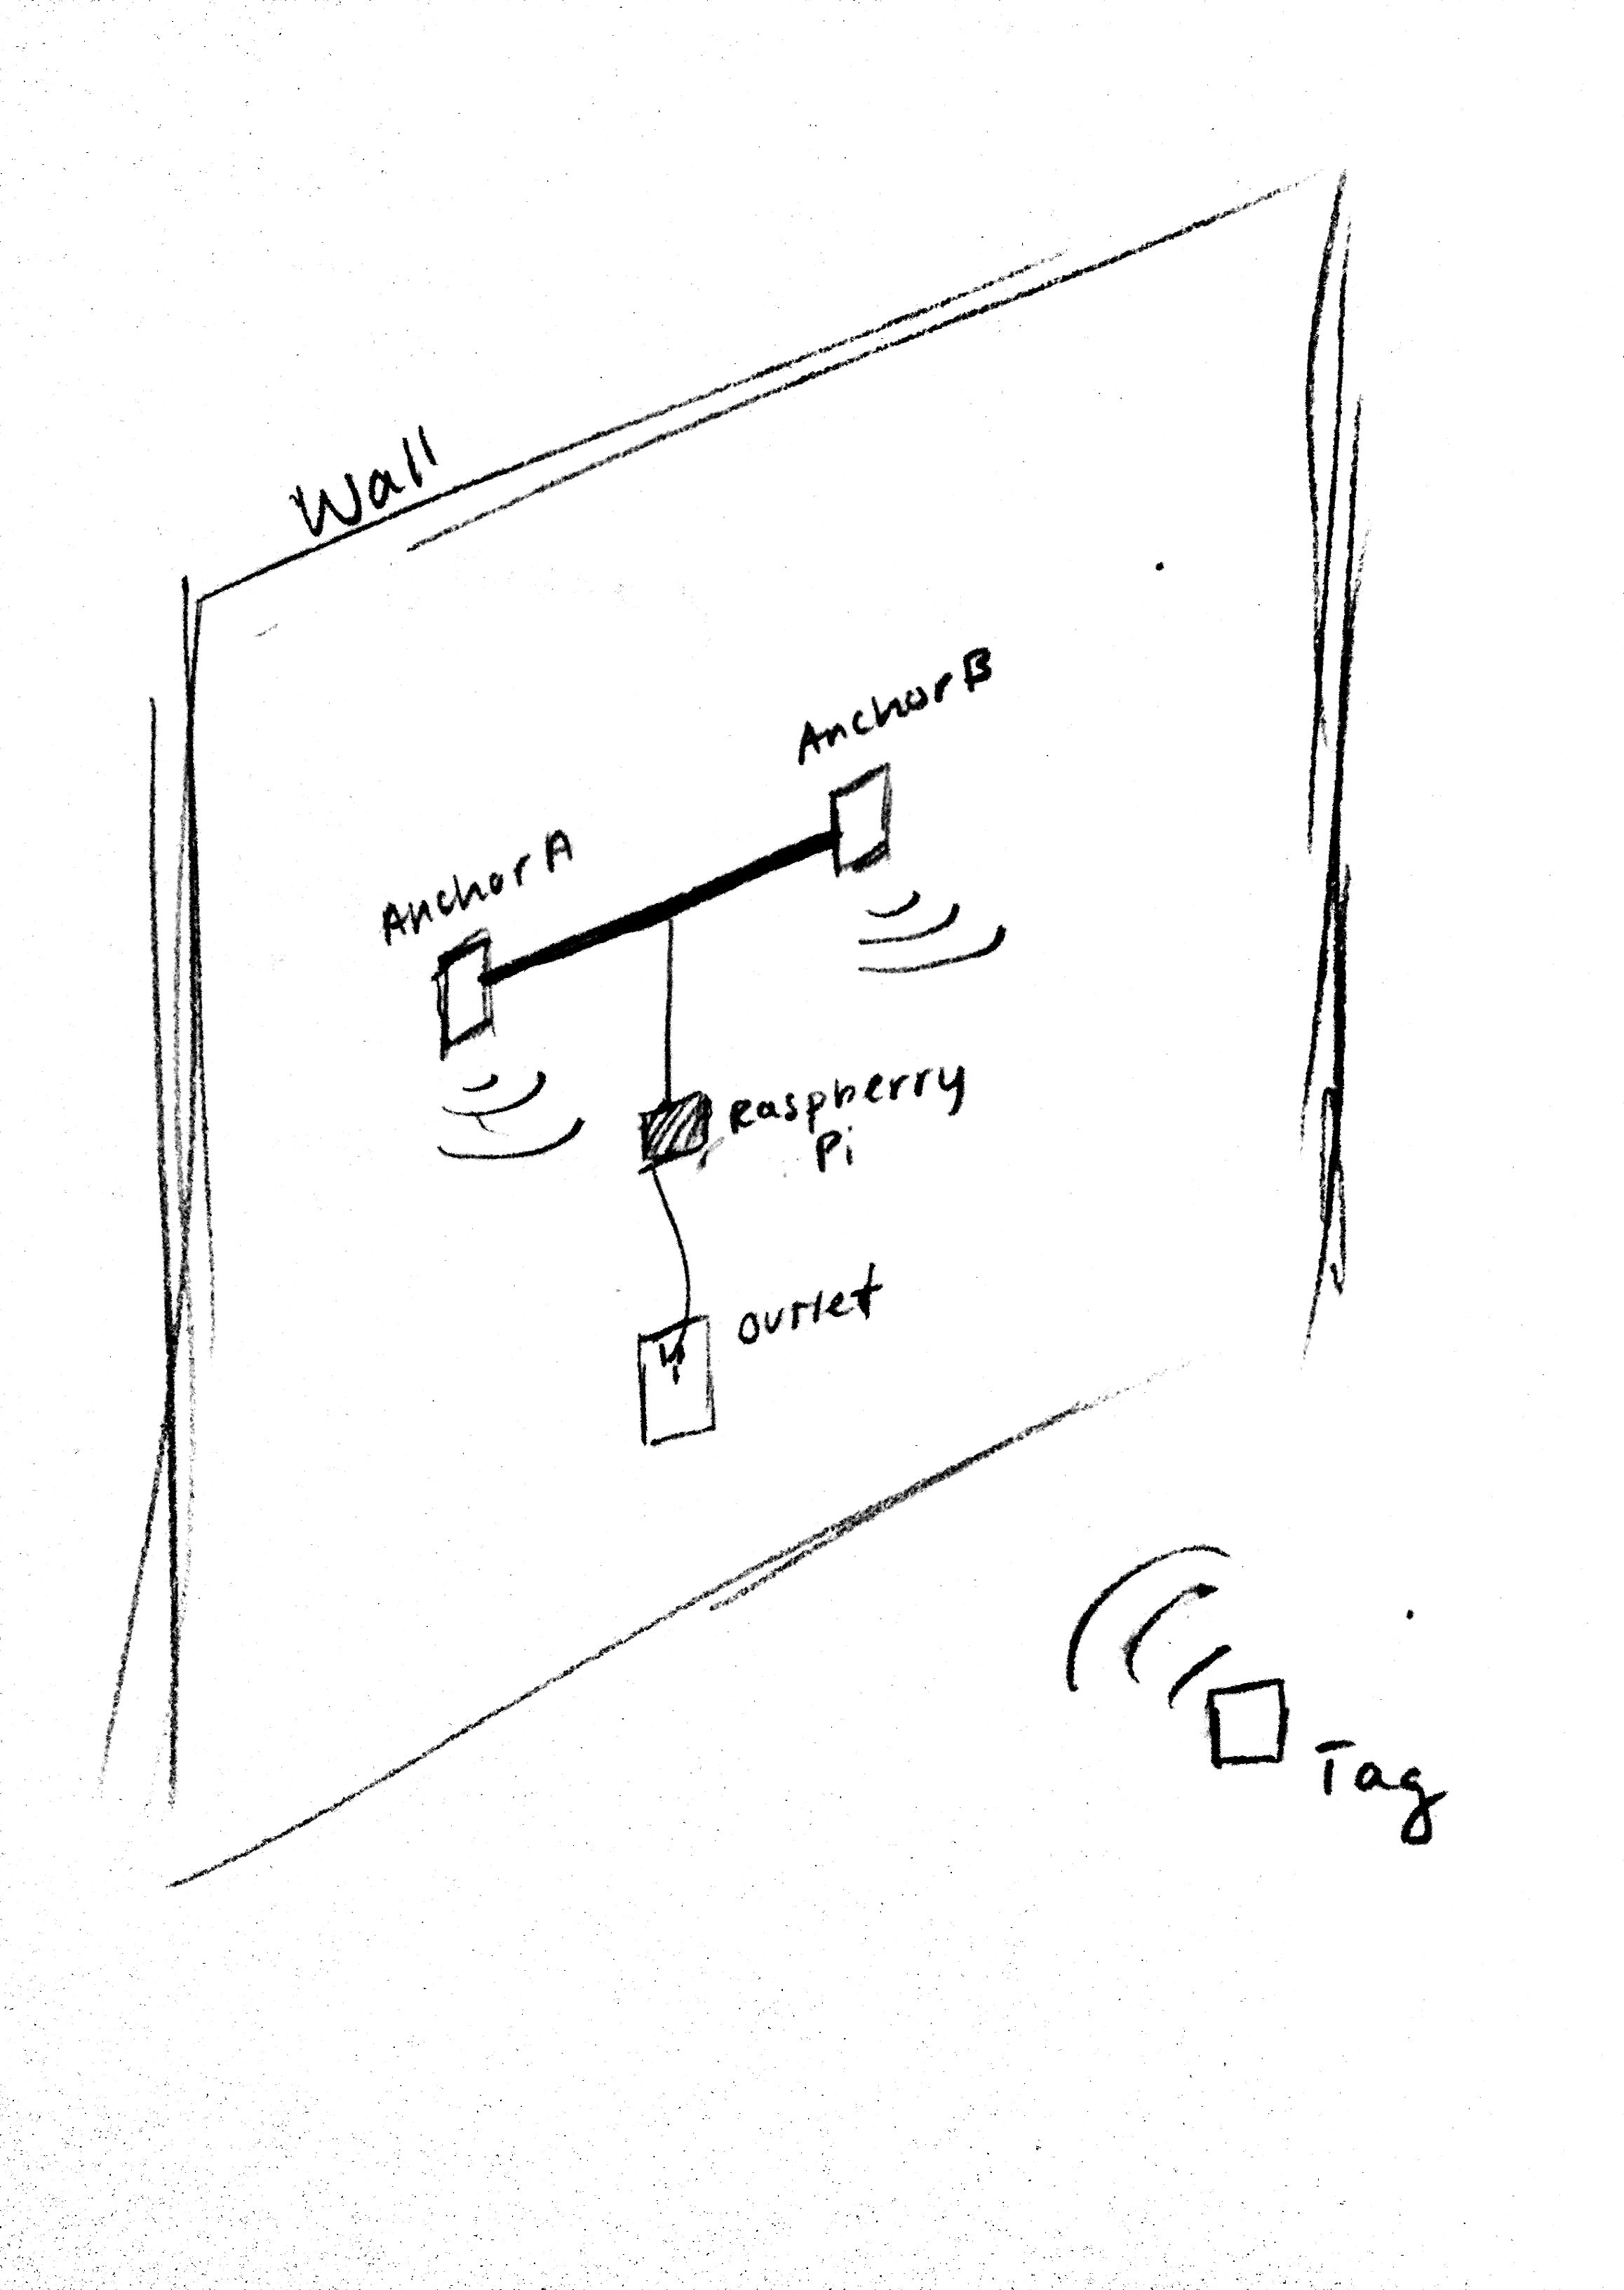 Wall
Anchor B
Anchor A
Raspberry
Pi
outlet
Tag